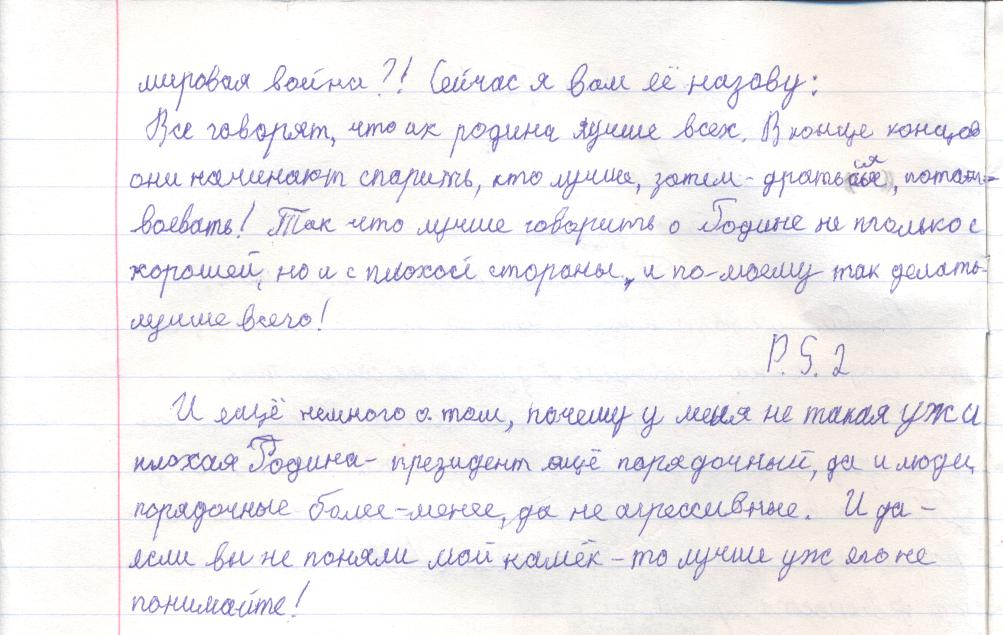 мировая война?! Сейчас я вам её назову:
Все говорят, что их родина лучше всех. В конце концов
они начинают спарить, кто лучше, затем - драться, потом -
воевать! Так что лучше говорить о Родине не только с
хорошей, но и с плохой стороны, и по-моему так делать
лучше всего!
P.S. 2
И ещё немного о том, почему у меня не такая уж и
плохая Родина - президент ещё порядочный, да и люди
порядочные более-менее, да не агрессивные. И да -
если вы не поняли мой намёк - то лучше уж его не
понимайте!